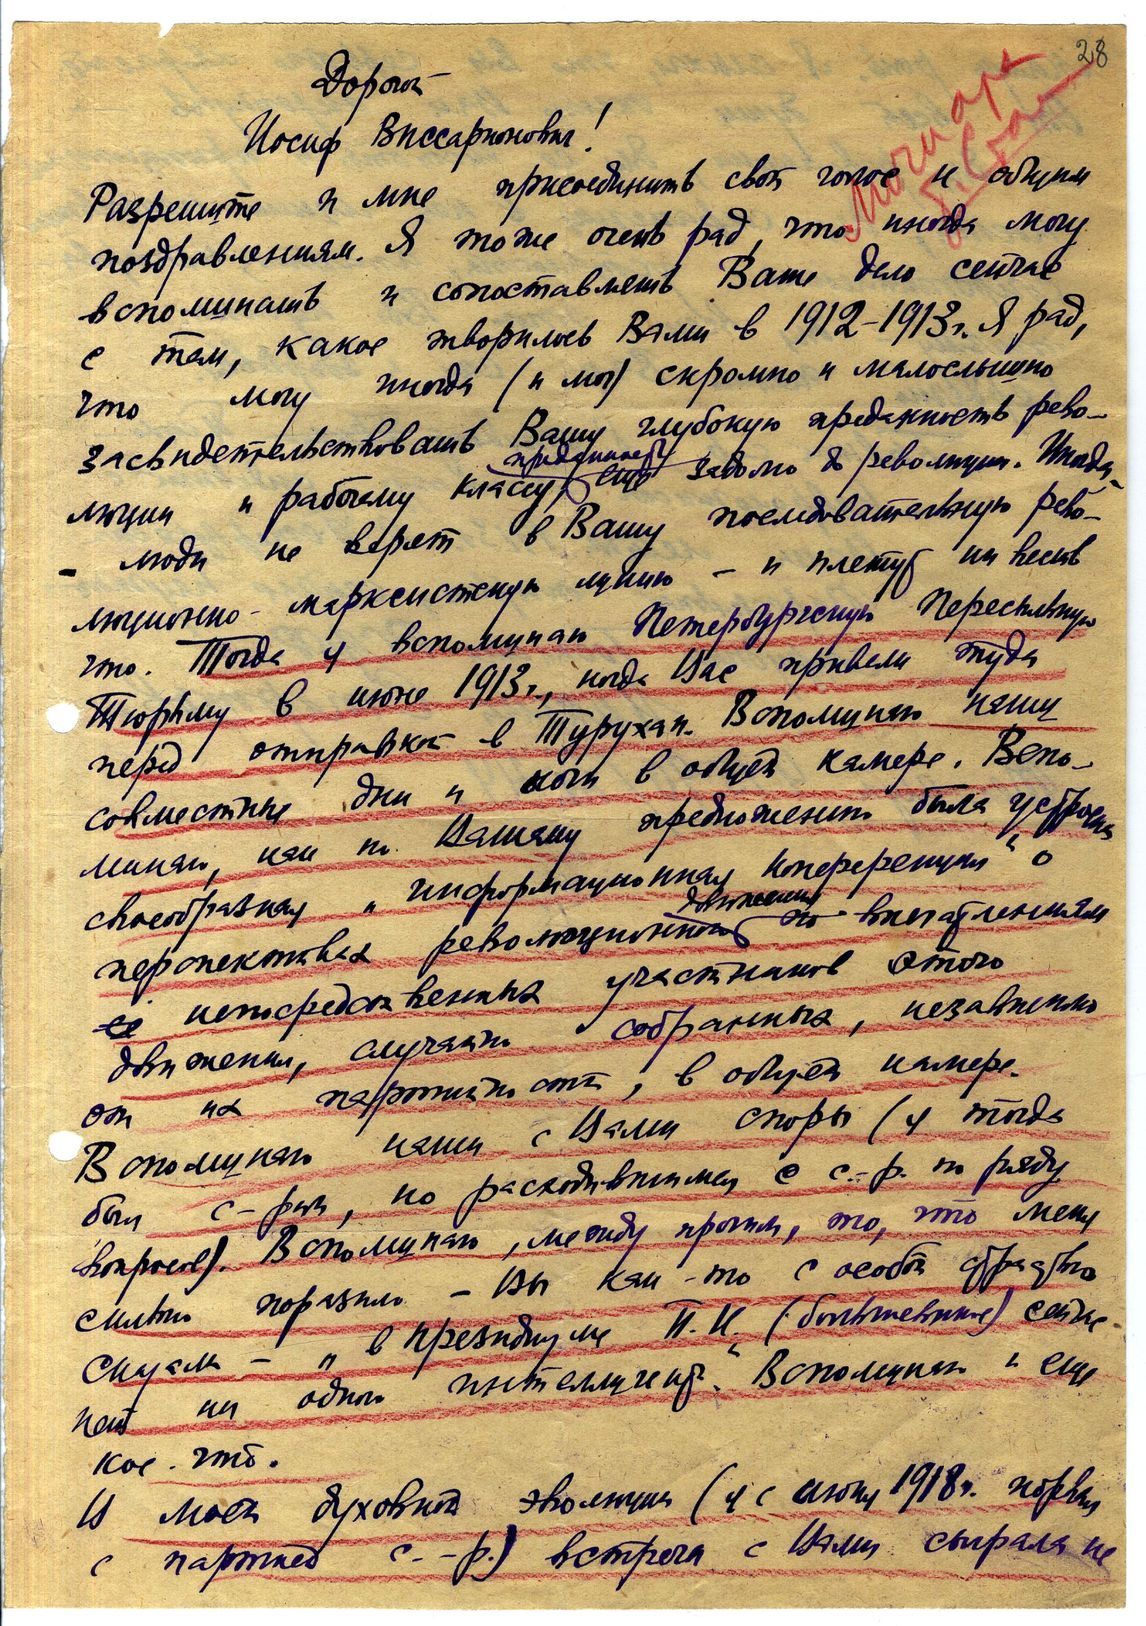 28
Мой арх
И. Ст
Дорогой
Иосиф Виссарионович!
Разрешите и мне присоединить свой голос к общим
поздравлениям. Я тоже очень рад, что иногда могу
вспоминать и сопоставлять Ваше дело сейчас
с тем, какое творилось Вами в 1912–1913 г. Я рад,
что могу иногда (и мог) скромно и малослышно
засвидетельствовать Вашу глубокую преданность рево-
люции и рабочему классу еще задолго до революции. Иногда
- люди не верят в Вашу последовательную рево-
люционно-марксистскую линию – и плетут ни весть
что. Тогда я вспоминаю Петербургскую Пересыльную
Тюрьму в июне 1913 г., когда Вас привели туда
перед отправкой в Турухан. Вспоминаю наши
совместные дни и ночи в общей камере. Вспо-
минаю, как по Вашему предложению была устроена
своеобразная „информационная конференция“ о
перспективах революционного движения по впечатлениям
непосредственных участников этого
движения, случайно собранных, независимо
от их партийности, в общей камере.
Вспоминаю наши с Вами споры (я тогда
был с-ром, но расходившимся с с.-р. по ряду
вопросов). Вспоминаю, между прочим, то, что меня
сильно поразило – Вы как-то с особой
сказали – „в президиуме Ц.К. (большевиков) сейчас
нет ни одного интеллигента“. Вспоминаю и еще
кое-что.
В моей духовной эволюции (я с июня 1918 г. порвал
с партией с.-р.) встреча с Вами сыграла не